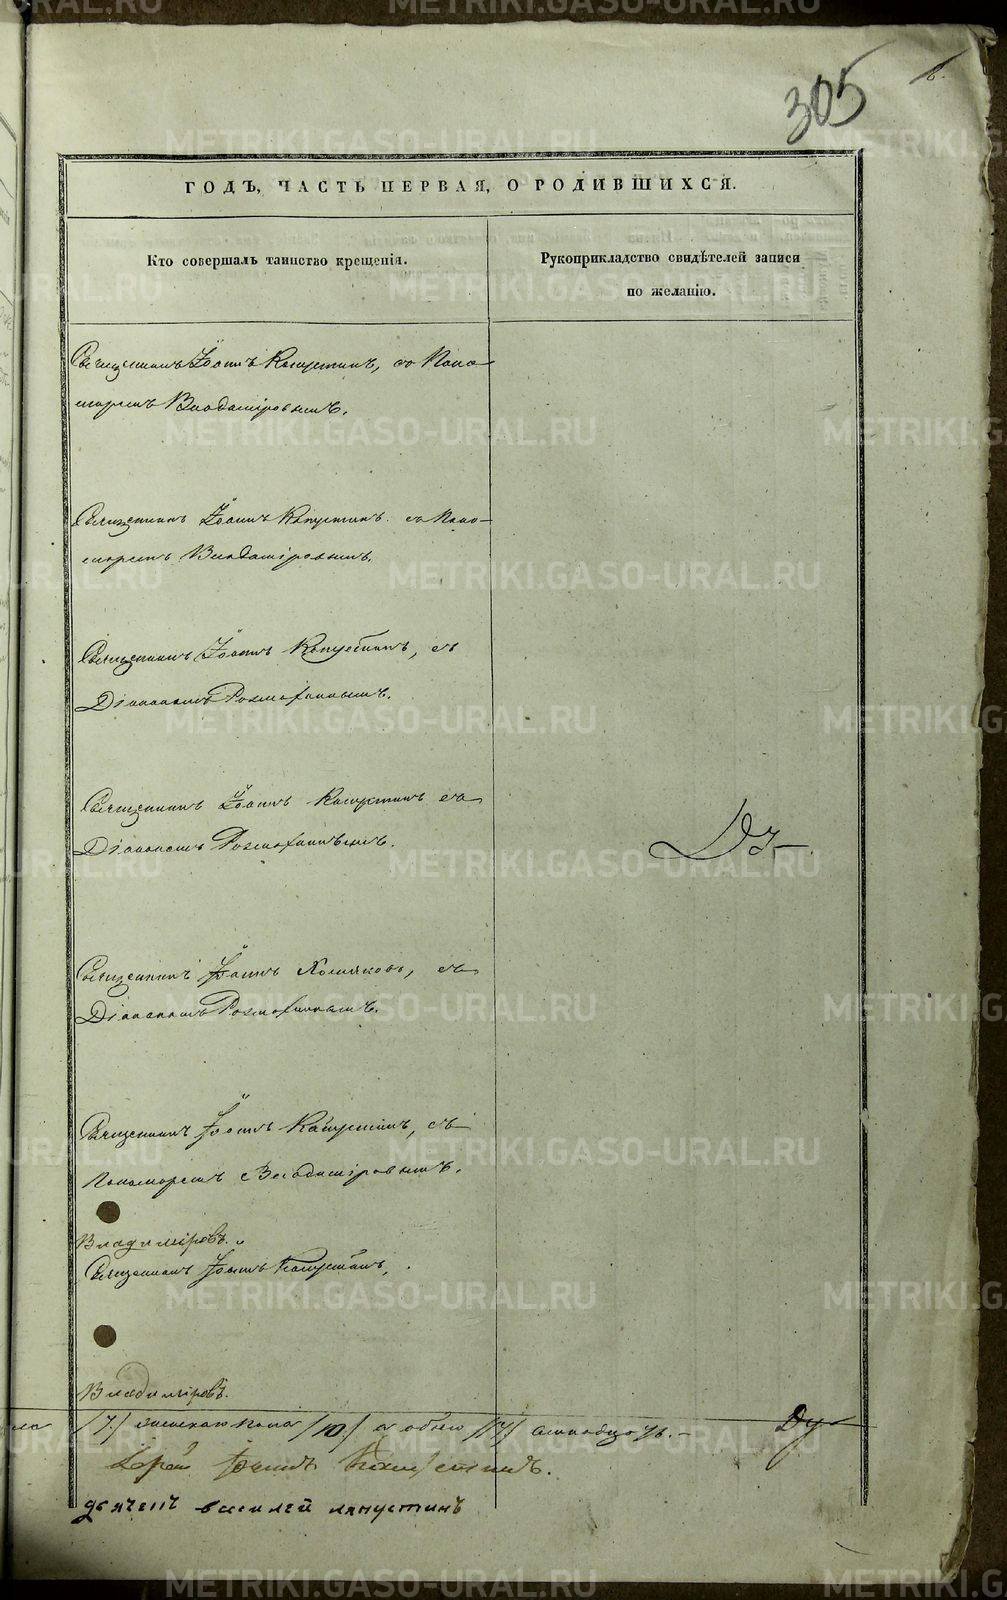 305
ГОДЪ, ЧАСТЬ ПЕРВАЯ, О РОДИВШИХСЯ.
Кто совершалъ таинство крещенія.
Рукоприкладство свидѣтелей записи
по желанію.
Священникъ Іоаннъ Капустинъ, съ Поно-
маремъ Владиміровымъ.
Священникъ Іоаннъ Капустинъ съ Поно-
маремъ Владиміровымъ.
Священникъ Іоаннъ Капустинъ, съ
Діакономъ
Священникъ Іоаннъ Капустинъ съ
Діакономъ
Священникъ Іоаннъ съ
Діакономъ
Священникъ Іоаннъ Капустинъ, съ
Пономаремъ Владиміровымъ.
Владиміровъ.
Священникъ Іоаннъ Капустинъ,
Владиміровъ.
/7/ женска пола /10/ а обоего /17/
Іерей Іоаннъ Капустинъ.
дьячекъ василей ляпустинъ
METRIKI.GASO-URAL.RU